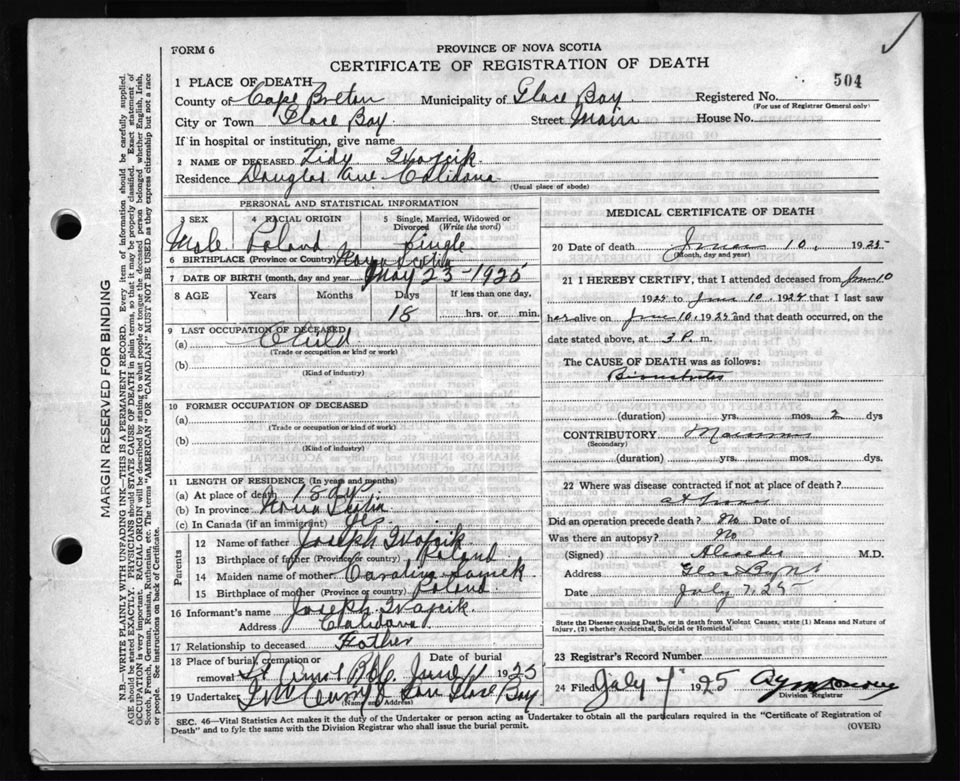 FORM 6
PROVINCE OF NOVA SCOTIA
CERTIFICATE OF REGISTRATION OF DEATH
504
1 PLACE OF DEATH
County of Cape Breton Municipality of Glace Bay Registered No.
(For use of Registrar General only)
City or Town Glace Bay Street Main House No.
If in hospital or institution, give name
2 NAME OF DECEASED
Residence Douglas Ave
(Usual place of abode)
PERSONAL AND STATISTICAL INFORMATION
3 SEX 4 RACIAL ORIGIN 5 Single, Married, Widowed or Divorced (Write the word)
Male Poland Single
6 BIRTHPLACE (Province or Country) Nova Scotia
7 DATE OF BIRTH (month, day and year May 23-1925
8 AGE Years Months Days If less than one day.
18 hrs. or min.
9 LAST OCCUPATION OF DECEASED
(a) Child
(Trade or occupation or kind or work)
(b)
(Kind of industry)
10 FORMER OCCUPATION OF DECEASED
(a)
(Trade or occupation or kind of work)
(b)
(Kind of industry)
11 LENGTH OF RESIDENCE (In years and months)
(a) At place of death 18 dys
(b) In province Nova Scotia
(c) In Canada (if an immigrant)
Parents
12 Name of father Joseph
13 Birthplace of father (Province or country) Poland
14 Maiden name of mother
15 Birthplace of mother (Province or country) Poland
16 Informant's name Joseph
Address
17 Relationship to deceased Father
18 Place of burial, cremation or removal Date of burial
June 11 1925
19 Undertaker & Son Glace Bay
(Name and Address)
MEDICAL CERTIFICATE OF DEATH
20 Date of death June 10, 1925
(Month, day and year)
21 I HEREBY CERTIFY, that I attended deceased from June 10
192 to June 10, 192 that I last saw
her alive on June 10, 192 and that death occurred, on
date stated above, at 3 P. m.
The CAUSE OF DEATH was as follows:
(duration) yrs. mos. 2 dys
CONTRIBUTORY
(Secondary)
(duration) yrs. mos. dys
22 Where was disease contracted if not at place of death?
Did an operation precede death? No Date of
Was there an autopsy? No
(Signed) M.D.
Address
Date July 7.25
State the Disease causing Death, or in death from Violent Causes, state (1) Means and Nature of
Injury, (2) whether Accidental, Suicidal or Homicidal.
23 Registrar's Record Number
24 Filed July 7 1925
Division Registrar
SEC. 46—Vital Statistics Act makes it the duty of the Undertaker or person acting as Undertaker to obtain all the particulars required in the "Certificate of Registration of
Death" and to fyle the same with the Division Registrar who shall issue the burial permit.
(OVER)
MARGIN RESERVED FOR BINDING
N.B.—WRITE PLAINLY WITH UNFADING INK—THIS IS A PERMANENT RECORD. Every item of information should be carefully supplied.
AGE should be stated EXACTLY. PHYSICIANS should STATE CAUSE OF DEATH in plain terms, so that it may be properly classified. Exact statement of
OCCUPATION is very important. RACIAL ORIGIN will be described by stating to what people or tongue the deceased person belonged whether English, Irish,
Scotch, French, German, Russian, Ruthenian, etc. The terms "AMERICAN" OR "CANADIAN" MUST NOT BE USED as they express citizenship but not a race
or people. See instructions on back of Certificate.